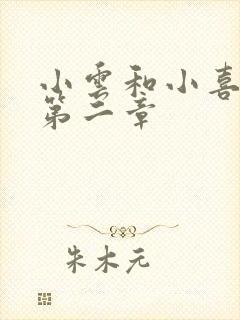 小雲和小喜
第二章
朱木元